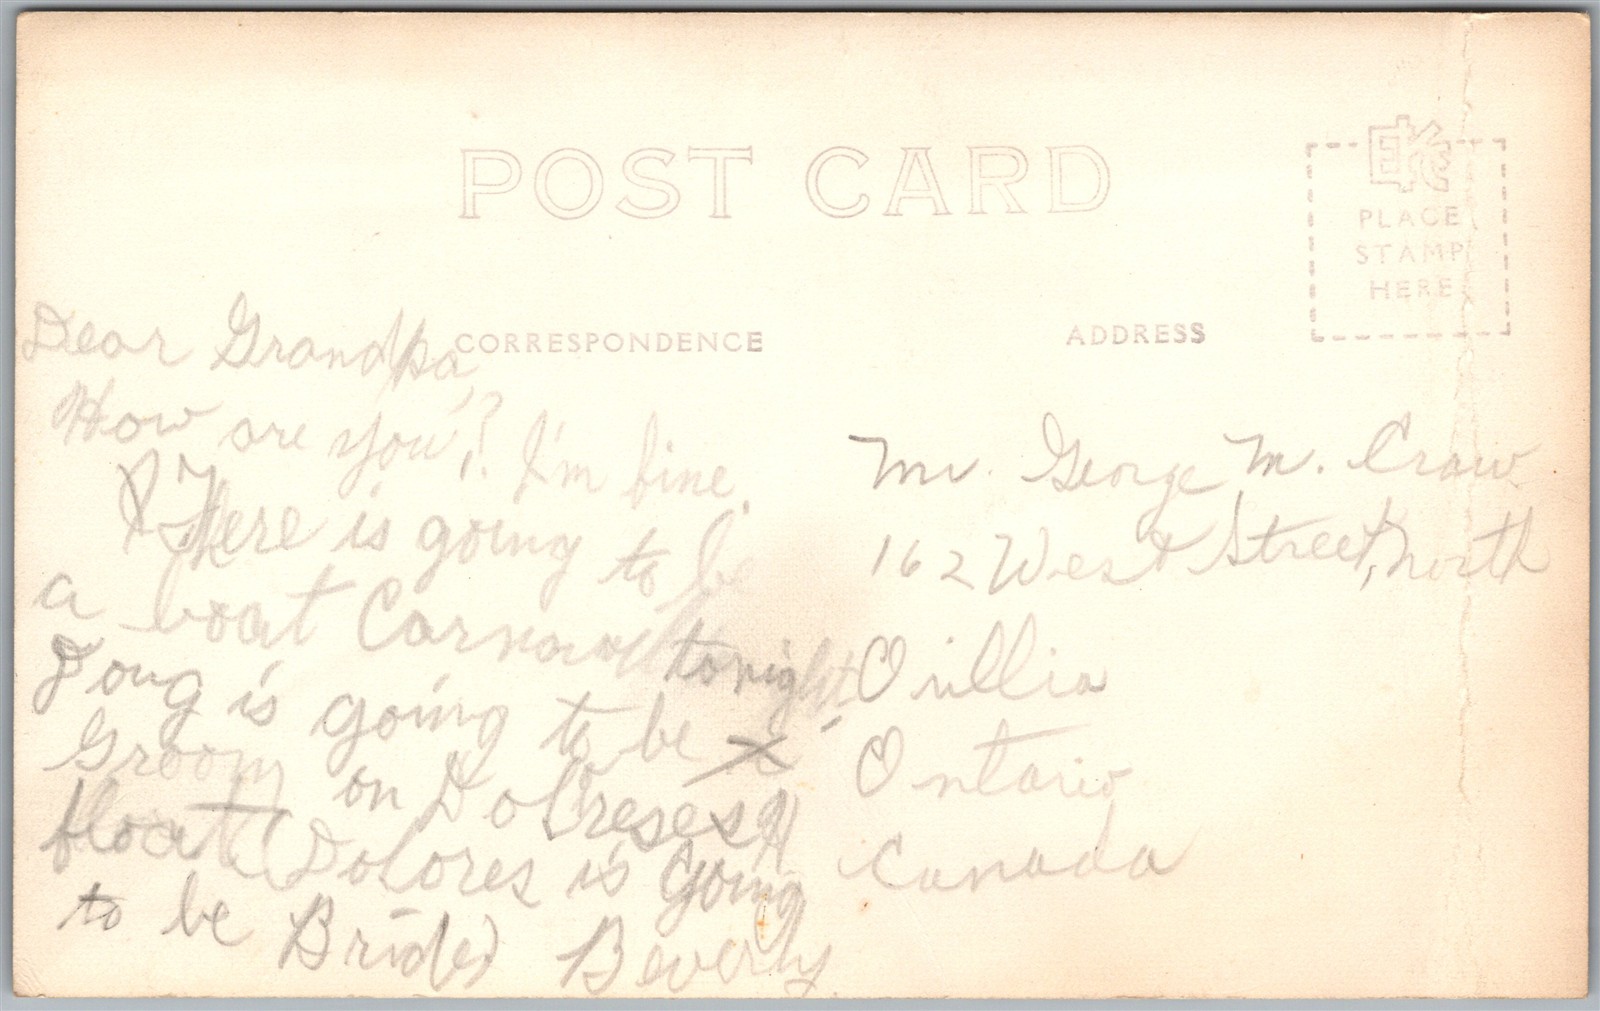 POST CARD
EKC
PLACE
STAMP
HERE
CORRESPONDENCE
ADDRESS
Dear Grandpa,
How are you? I'm fine.
There is going to be
a boat Carnaval tonight.
Doug is going to be
Groom on Doloreses
float (Dolores is going
to be Bride) Beverly
Mr. George M. Craw
162 West Street, north
Orillia
Ontario
Canada